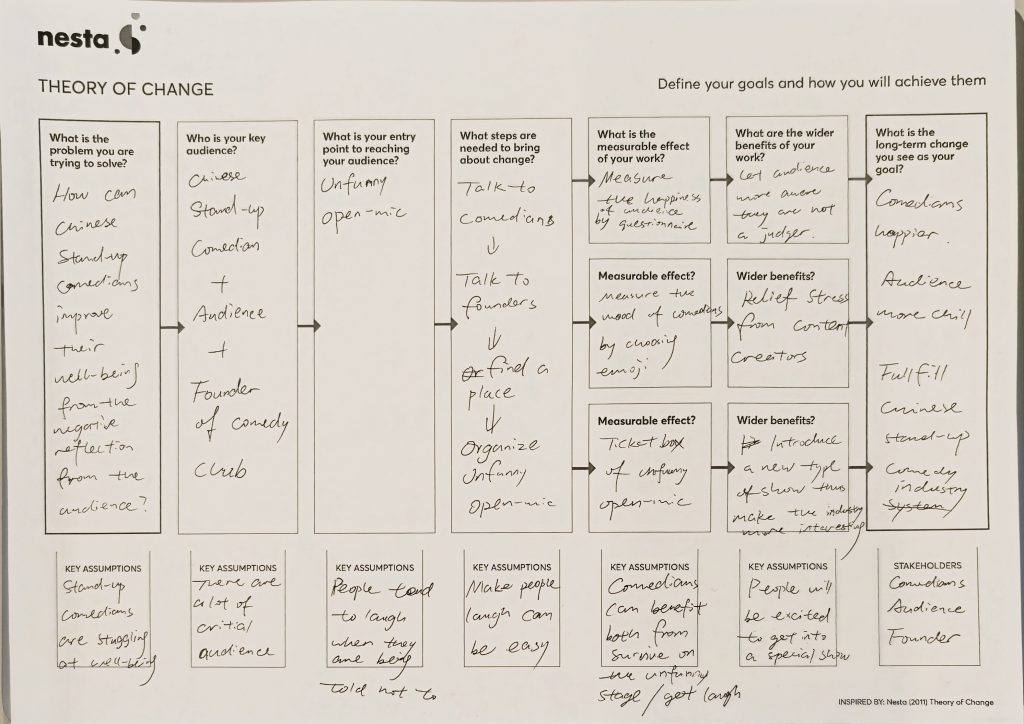 nesta
THEORY OF CHANGE
Define your goals and how you will achieve them
What is the
problem you are
trying to solve?
How can
Chinese
Stand-up
comedians
improve
their
well-being
from the
negative
reflection
from the
audience?
Who is your key
audience?
Chinese
Stand-up
Comedian
+
Audience
+
Founder
of comedy
club
What is your entry
point to reaching
your audience?
Unfunny
open-mic
What steps are
needed to bring
about change?
Talk to
comedians
↓
Talk to
founders
↓
find a
place
↓
Organize
Unfunny
open-mic
What is the
measurable effect
of your work?
Measure
the happiness
of audience
by questionnaire
What are the wider
benefits of your
work?
Let audience
more aware
they are not
a judger.
What is the
long-term change
you see as your
goal?
Comedians
happier.
Audience
more chill
Fullfill
Chinese
stand-up
Comedy
industry
System
Measurable effect?
measure the
mood of comedians
by choosing
emoji
Wider benefits?
Relief Stress
from content
creators
Measurable effect?
Ticket box
of unfunny
open-mic
Wider benefits?
Introduce
a new type
of show thus
make the industry
more interesting
KEY ASSUMPTIONS
Stand-up
comedians
are struggling
at well-being
KEY ASSUMPTIONS
There are
a lot of
critial
audience
KEY ASSUMPTIONS
People tend
to laugh
when they
are being
told not to
KEY ASSUMPTIONS
Make people
laugh can
be easy
KEY ASSUMPTIONS
Comedians
can benefit
both from
survive on
the unfunny
stage / get laugh
KEY ASSUMPTIONS
People will
be excited
to get into
a special show
STAKEHOLDERS
Comedians
Audience
Founder
INSPIRED BY: Nesta (2011) Theory of Change